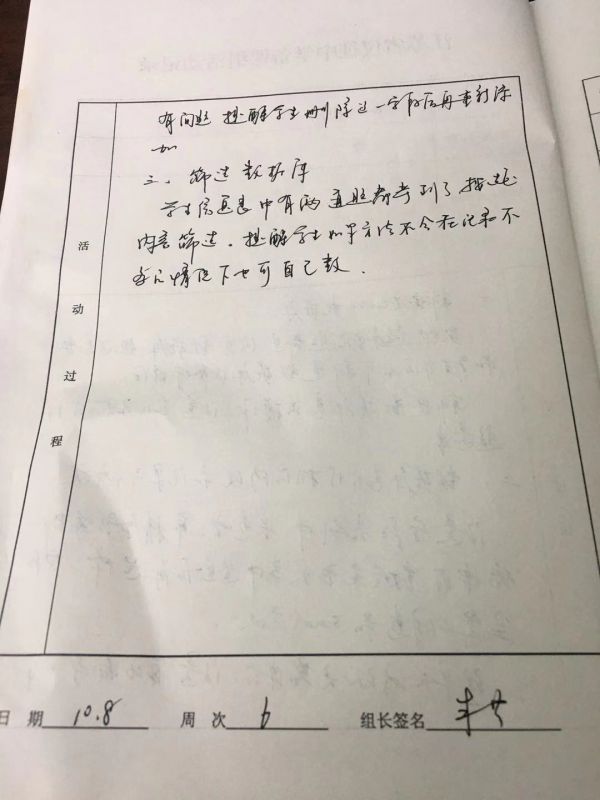 有问题 提醒学生删除这一字段后再重新添
加
三、筛选数据库
学生信息表中有两道题都考到了按选
内容筛选。提醒学生如果方法不会在记录不
多的情况下也可自己数.
活
动
过
程
日 期 10.8 周 次 6 组长签名